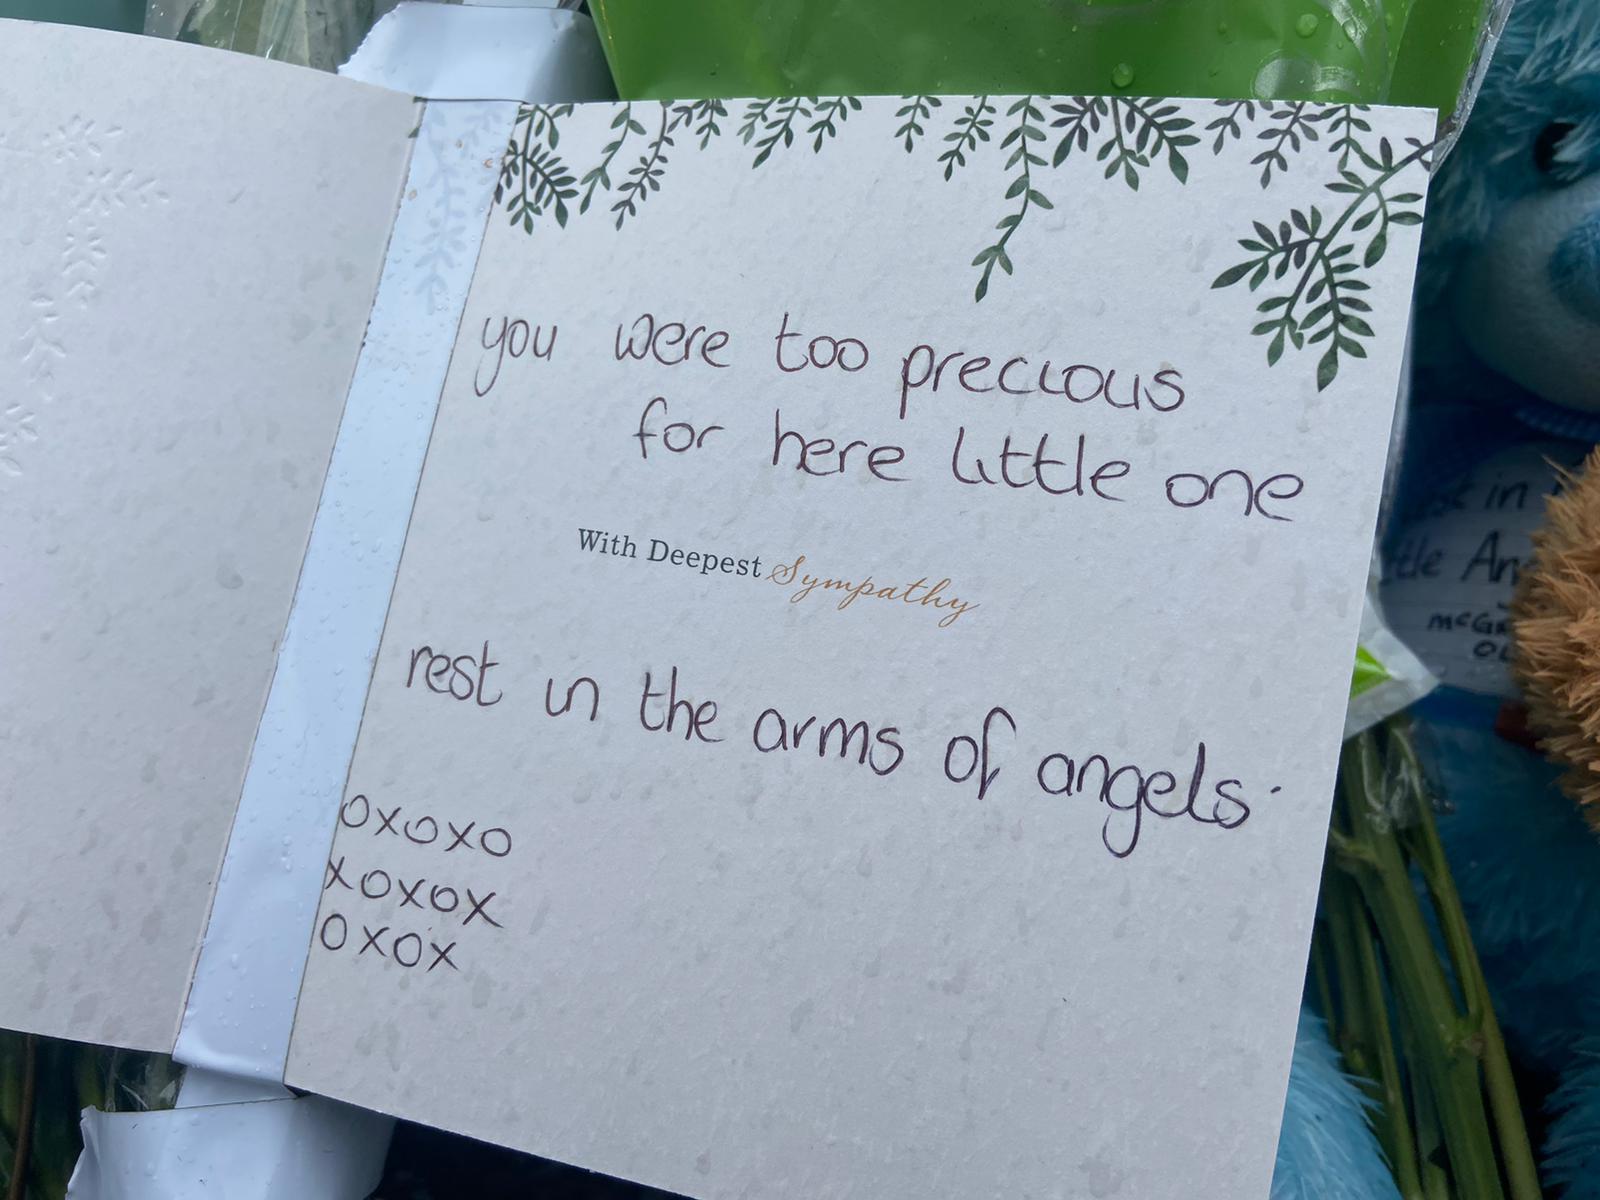 you were too precious
for here little one
With Deepest Sympathy
rest in the arms of angels.
OXOXO
XOXOX
OXOX
in